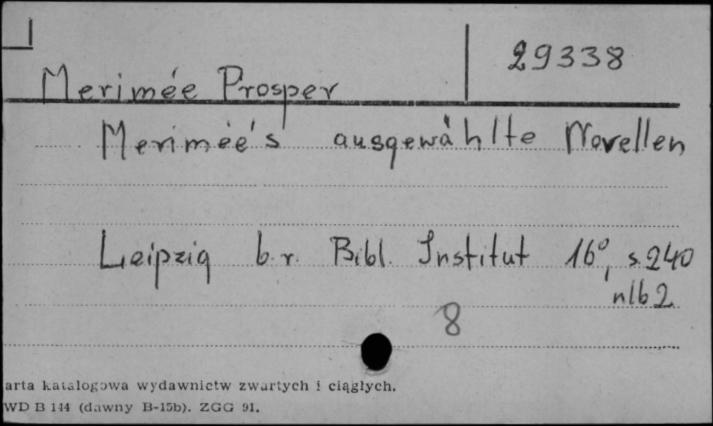 29338
Merimée Prosper
Merimée's ausgewählte Novellen
Leipzig b.r. Bibl. Institut 16°, s. 240
nlb 2
8
arta katalogowa wydawnictw zwartych i ciągłych.
WD B 144 (dawny B-15b). ZGG 91.